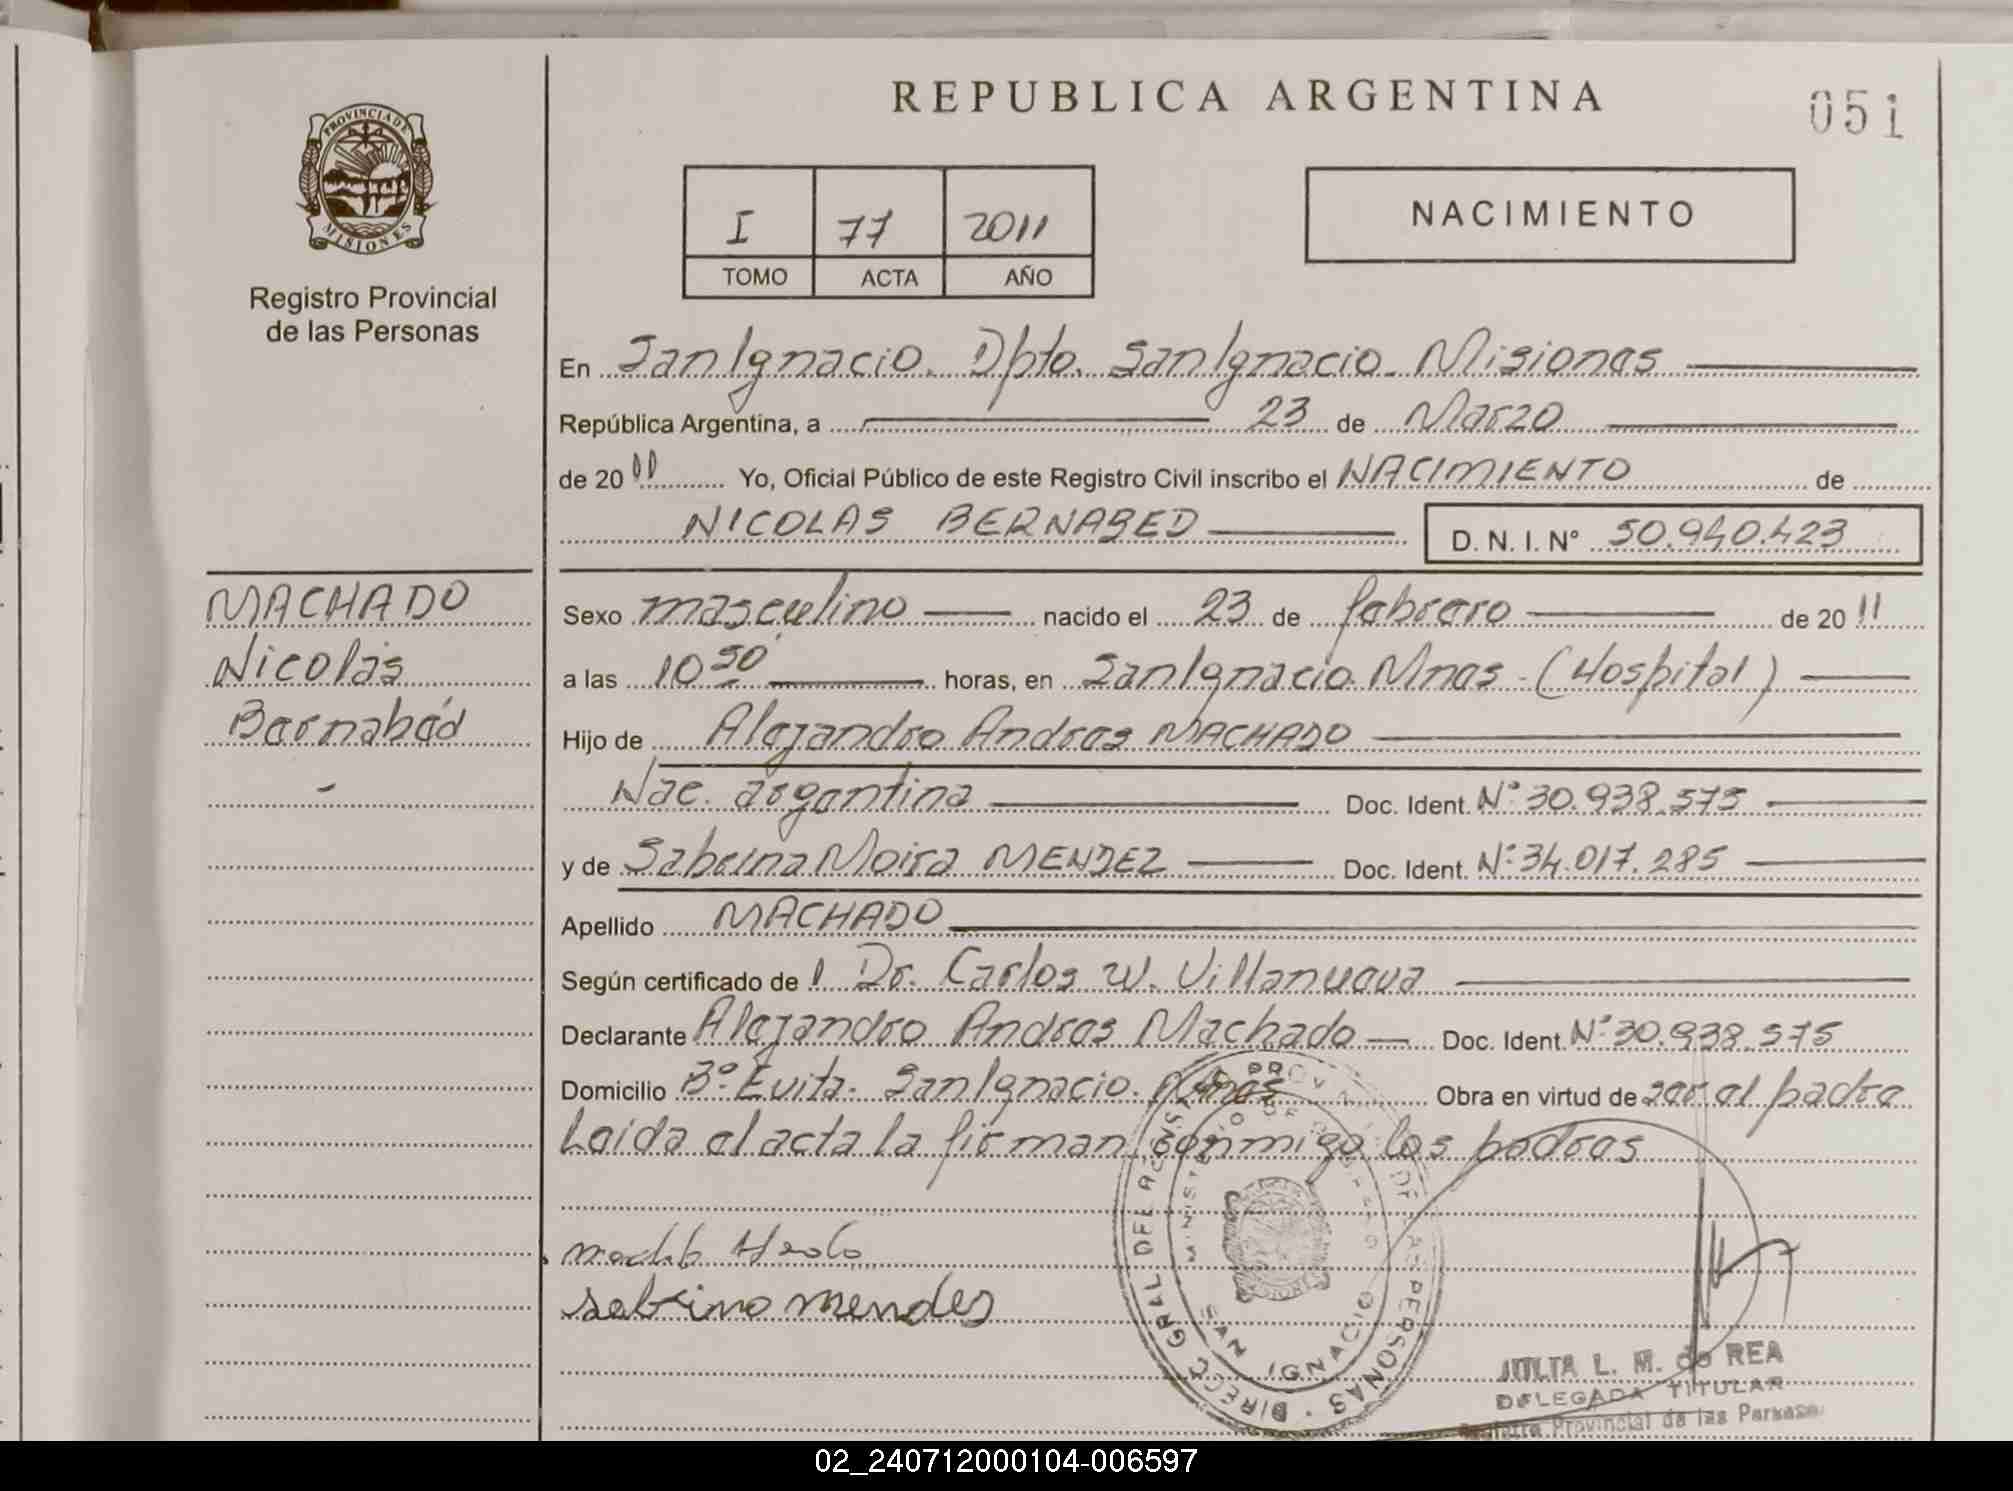 REPUBLICA ARGENTINA
051
PROVINCIA DE MISIONES
Registro Provincial
de las Personas
I 77 2011
TOMO ACTA AÑO
NACIMIENTO
En San Ignacio. Dpto. San Ignacio. Misiones
República Argentina, a 23 de Marzo
de 2011 Yo, Oficial Público de este Registro Civil inscribo el NACIMIENTO de
NICOLAS BERNABED D. N. I. N° 50.940.423
MACHADO
Nicolás
Bernabéd
-
Sexo masculino nacido el 23 de febrero de 2011
a las 10 50 horas, en San Ignacio Mnes - (Hospital)
Hijo de Alejandro Andres MACHADO
Nac. argentina Doc. Ident. N° 30.938.575
y de Sabrina Moira MENDEZ Doc. Ident. N° 34.017.285
Apellido MACHADO
Según certificado de Dr. Carlos W. Villanueva
Declarante Alejandro Andres Machado Doc. Ident. N° 30.938.575
Domicilio B° Evita. San Ignacio. Mnes Obra en virtud de ser el padre
Leida el acta la firman conmigo los padres
sabrina mendes
DIRECC GRAL DEL PROV DE LAS PERSONAS
MINISTERIO DE
SAN IGNACIO
JULIA L. M. de REA
DELEGADA TITULAR
Registro Provincial de las Personas
02_240712000104-006597